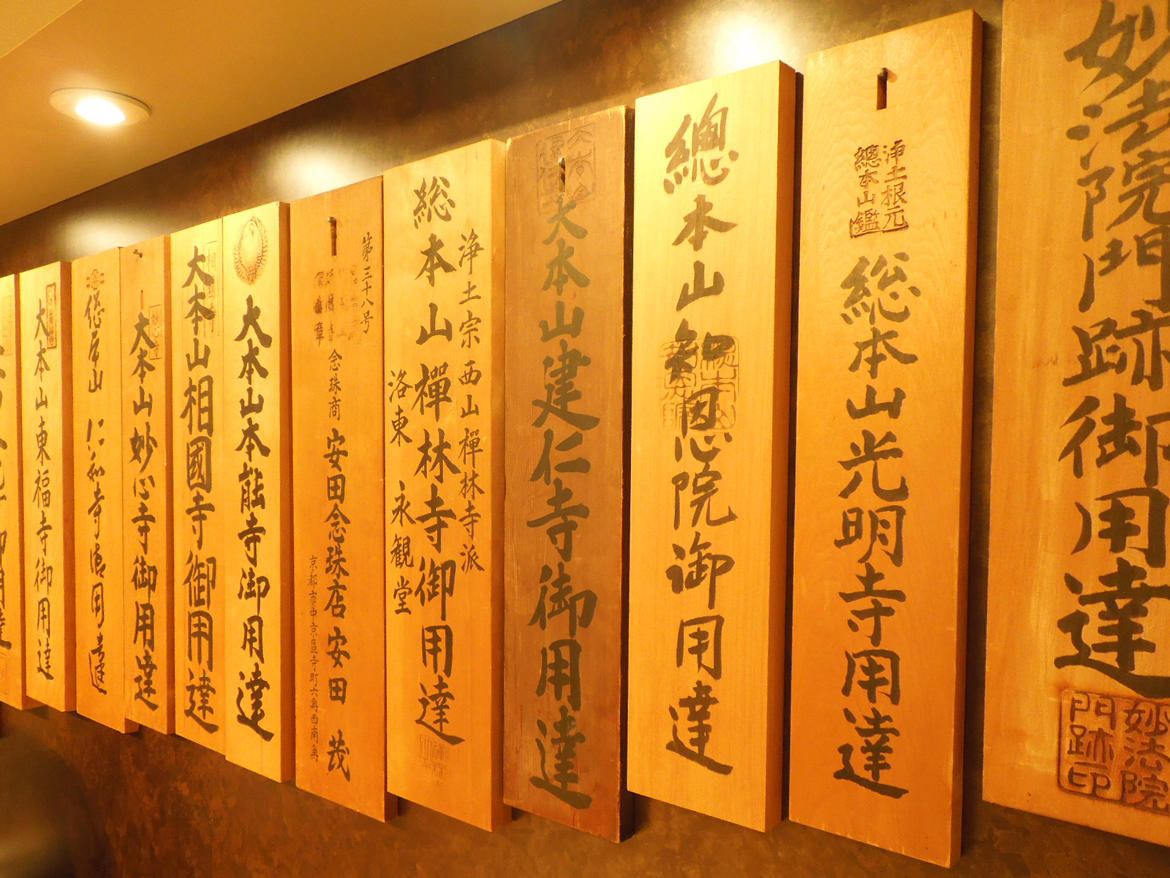 妙法院門跡御用達
妙法院
門跡印
浄土根元
總本山鑑
総本山光明寺用達
總本山知恩院御用達
大本山建仁寺御用達
浄土宗西山禪林寺派
総本山禪林寺御用達
洛東 永観堂
第三十八号
念珠商 安田念珠店 安田 茂
大本山本能寺御用達
大本山相國寺御用達
大本山妙心寺御用達
仁和寺御用達
大本山東福寺御用達